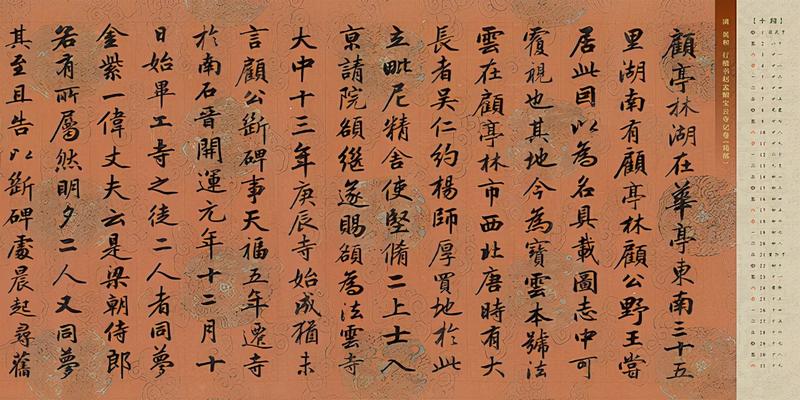 【十月】
行楷书赵孟頫宝云寺记卷（局部）
顧亭林湖在華亭東南三十五
里湖南有顧亭林顧公野王嘗
居此因以為名具載圖志中可
覆視也其地今為寶雲本號法
雲在顧亭林市西北唐時有大
長者吴仁約楊師厚買地於此
立毗尼精舍使堅脩二上士入
京請院額继遂賜額為法雲寺
大中十三年庚辰寺始成猶未
言顧公斷碑事天福五年遷寺
於南石晉開運元年十二月十
日始畢工寺之徒二人者同夢
金紫一偉丈夫云是梁朝侍郎
若有所屬然明夕二人又同夢
其至且告以斷碑處晨起尋舊